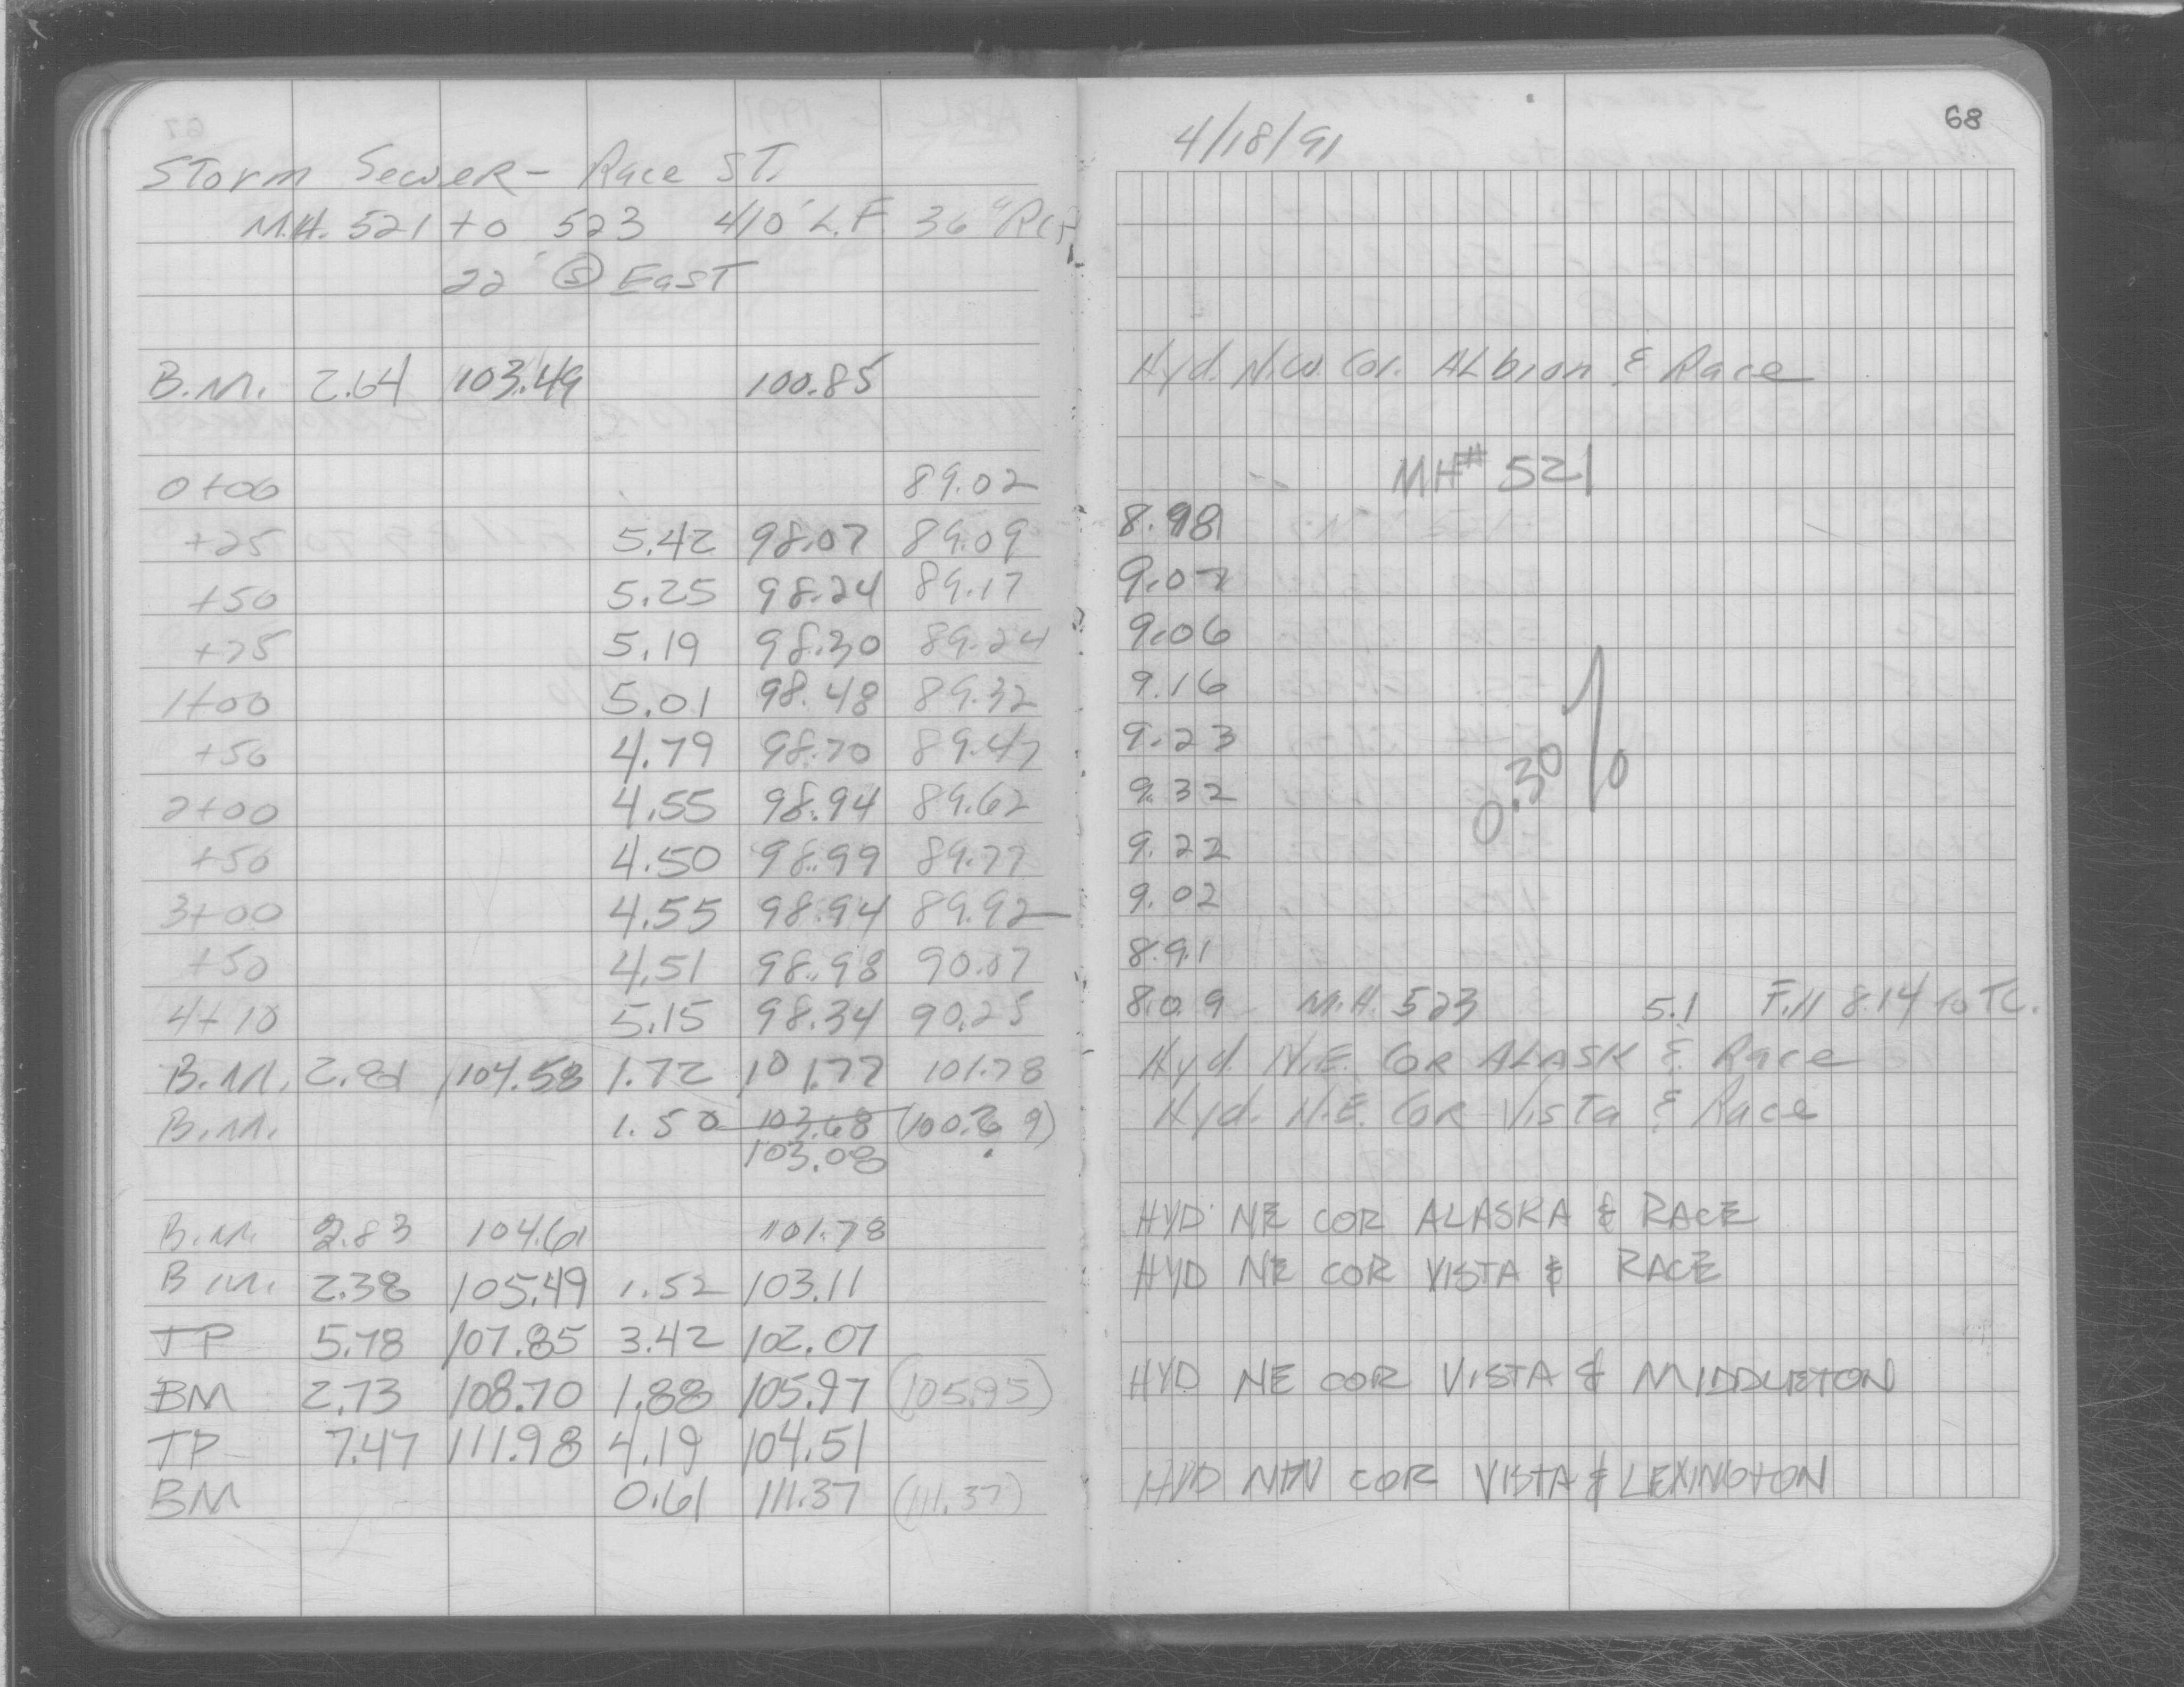 Storm Sewer - Race ST.
M.H. 521 to 523 410' L.F. 36" RCP
22' (S) East
B.M. 2.64 103.49 100.85
0+00 89.02
+25 5.42 98.07 89.09
+50 5.25 98.24 89.17
+75 5.19 98.30 89.24
1+00 5.01 98.48 89.32
+50 4.79 98.70 89.47
2+00 4.55 98.94 89.62
+50 4.50 98.99 89.77
3+00 4.55 98.94 89.92
+50 4.51 98.98 90.07
4+10 5.15 98.34 90.25
B.M. 2.81 104.58 1.72 101.77 101.78
B.M. 1.50 103.68
103.08
B.M. 2.83 104.61 101.78
B.M. 2.38 105.49 1.52 103.11
TP 5.78 107.85 3.42 102.07
BM 2.73 108.70 1.88 105.97 (105.95)
TP 7.47 111.98 4.19 104.51
BM 0.61 111.37 (111.37)
68
4/18/91
Hyd. N.W. Cor. Albion & Race
MH# 521
8.98
9.07
9.06
9.16
9.23
9.32
9.22
9.02
8.91
0.30%
8.09 M.H. 523 5.1 Fill 8.14 to TC.
Hyd. N.E. COR ALASK & Race
Hyd. N.E. COR Vista & Race
HYD NE COR ALASKA & RACE
HYD NE COR VISTA & RACE
HYD NE COR VISTA & MIDDLETON
HYD NW COR VISTA & LEXINGTON